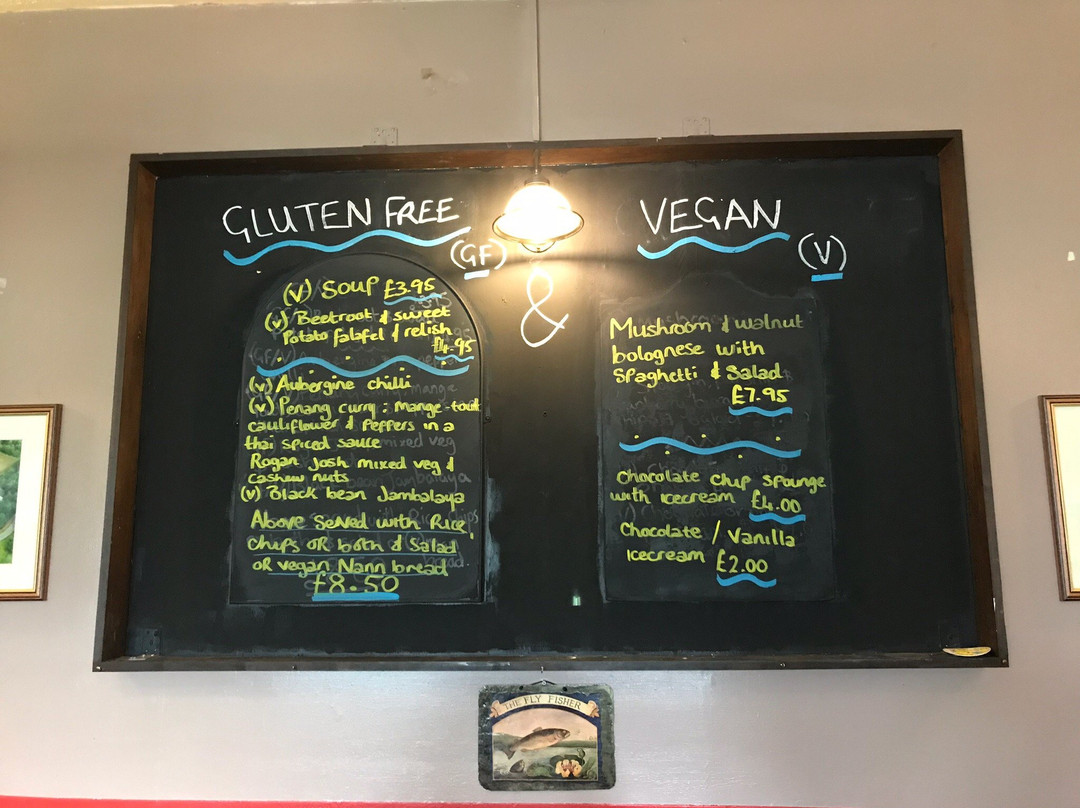 GLUTEN FREE
(GF)
(V) Soup £3.95
(V) Beetroot & sweet
Potato falafel & relish
£4.95
(V) Aubergine chilli
(V) Penang curry : mange-tout
cauliflower & Peppers in a
thai spiced sauce
Rogan Josh mixed veg &
cashew nuts
(V) Black bean Jambalaya
Above served with Rice,
Chips OR both & Salad
OR vegan Nann bread
£8.50
&
VEGAN
(V)
Mushroom & walnut
bolognese with
Spaghetti & Salad
£7.95
Chocolate chip spounge
with icecream £4.00
Chocolate / Vanilla
icecream £2.00
THE FLY FISHER